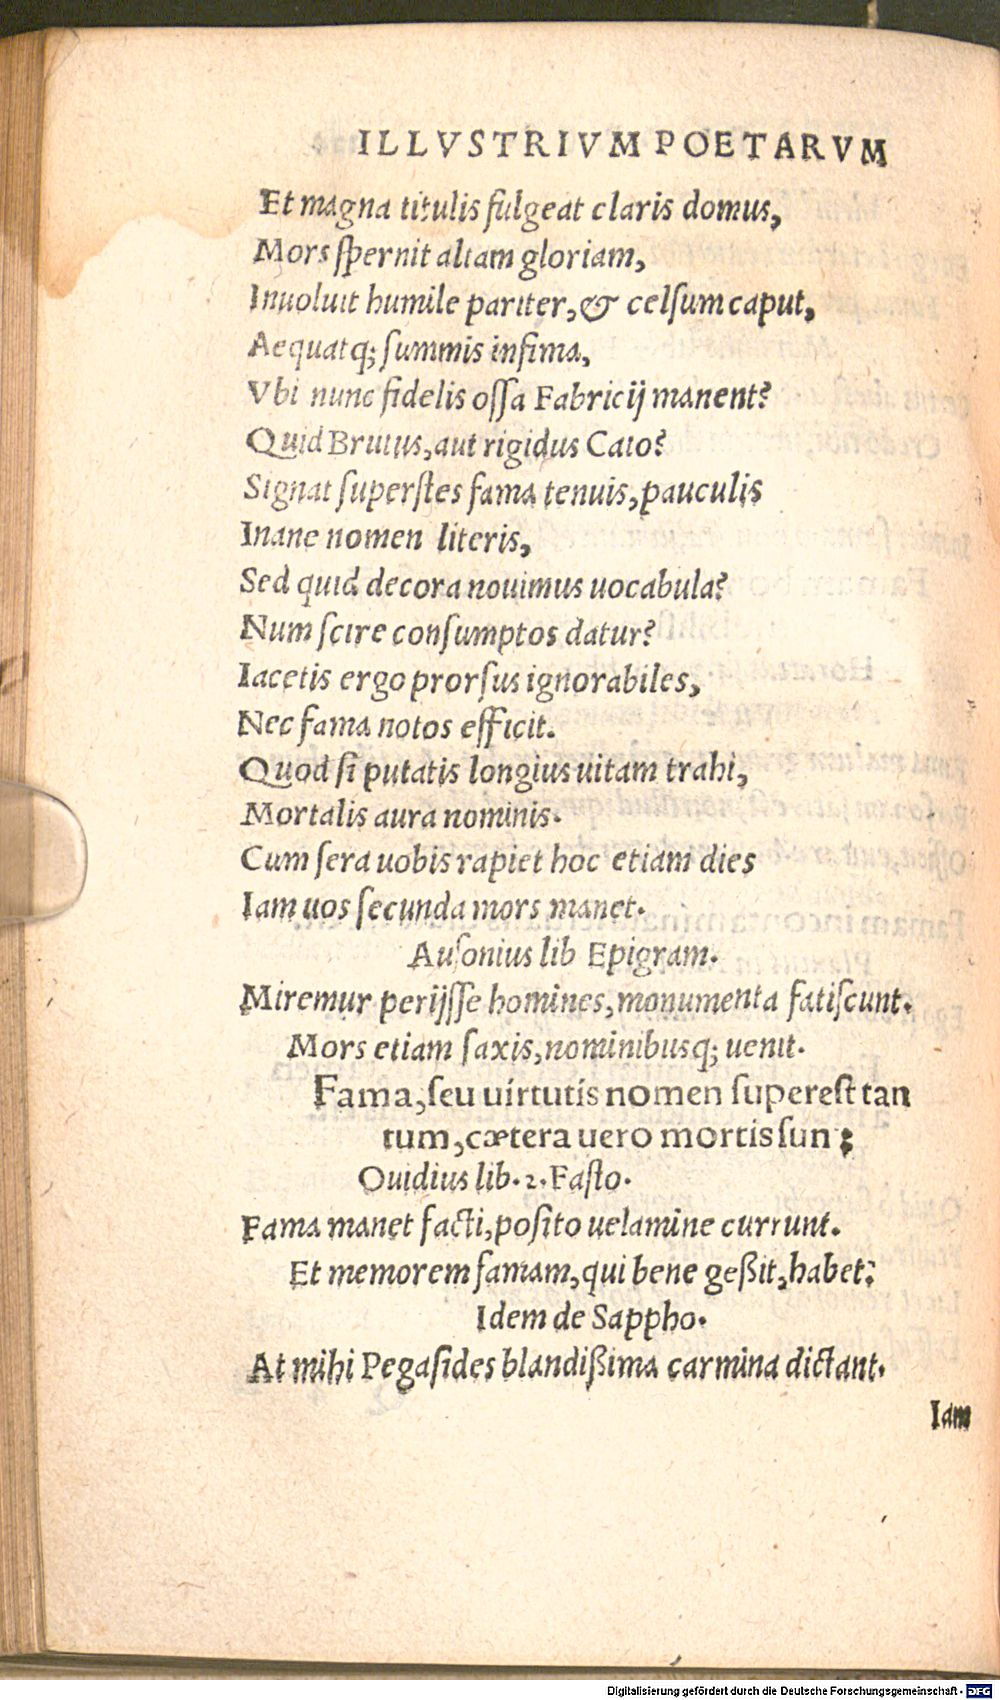 ILLVSTRIVM POETARVM
Et magna titulis fulgeat claris domus,
Mors spernit altam gloriam,
Inuoluit humile pariter, & celsum caput,
Aequatq; summis infima,
Vbi nunc fidelis ossa Fabricij manent?
Quid Brutus, aut rigidus Cato?
Signat superstes fama tenuis, pauculis
Inane nomen literis,
Sed quid decora nouimus uocabula?
Num scire consumptos datur?
Iacetis ergo prorsus ignorabiles,
Nec fama notos efficit.
Quod si putatis longius uitam trahi,
Mortalis aura nominis.
Cum sera uobis rapiet hoc etiam dies
Iam uos secunda mors manet.
Ausonius lib Epigram.
Miremur perijsse homines, monumenta fatiscunt.
Mors etiam saxis, nominibusq; uenit.
Fama, seu uirtutis nomen superest tan
tum, cætera uero mortis sun;
Ouidius lib. 2. Fasto.
Fama manet facti, posito uelamine currunt.
Et memorem famam, qui bene geßit, habet:
Idem de Sappho.
At mihi Pegasides blandißima carmina dictant.
Iam
Digitalisierung gefördert durch die Deutsche Forschungsgemeinschaft - DFG